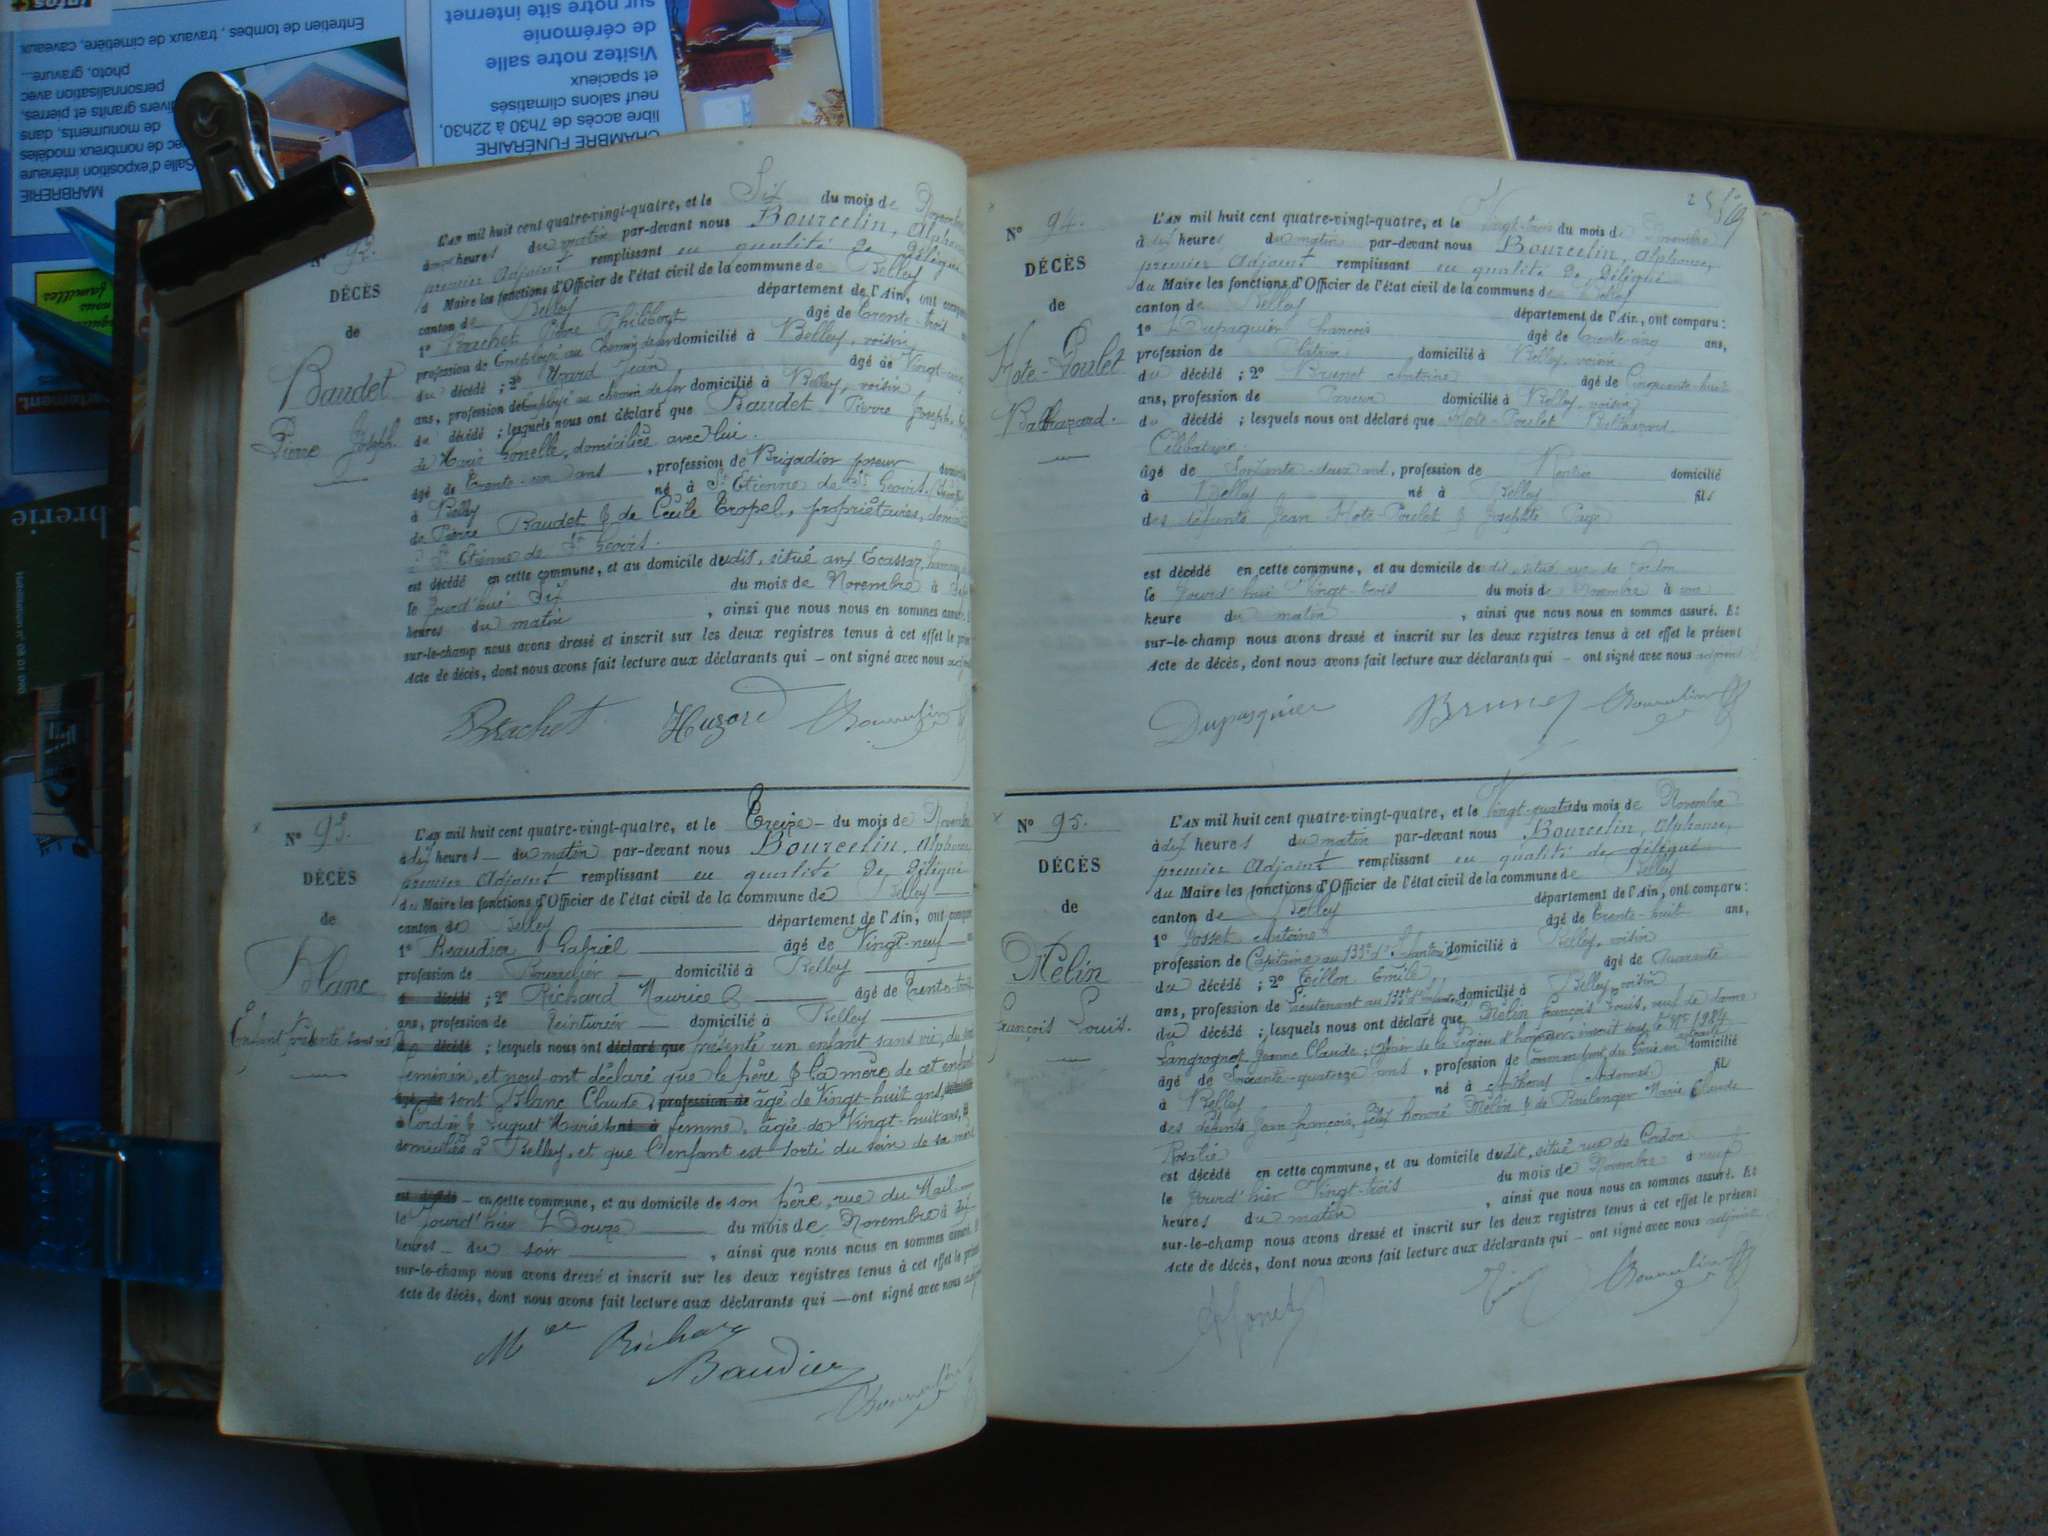 Entretien de tombes, travaux de cimetière, caveaux
photo, gravure...
personnalisation avec
divers granits et pierres,
de monuments, dans
de nombreux modèles
Salle d'exposition intérieure
MARBRERIE
sur notre site internet
de cérémonie
Visitez notre salle
et spacieux
neuf salons climatisés
libre accès de 7h30 à 22h30,
CHAMBRE FUNÉRAIRE
L'AN mil huit cent quatre-vingt-quatre, et le Six du mois de
heures du matin par-devant nous Bourcelin, Alphonse
premier Adjoint remplissant en qualité de délégué
Maire les fonctions d'Officier de l'état civil de la commune de Belley
canton de Belley département de l'Ain, ont
1º Brachet Pierre Philibert âgé de trente-trois
profession de Employé au Chemin de fer domicilié à Belley, voisin
du décédé ; 2º Jean âgé de Vingt
ans, profession de Employé au chemin de fer domicilié à Belley, voisin
du décédé ; lesquels nous ont déclaré que Baudet Pierre Joseph
de Marie Gonelle, domiciliée avec lui.
âgé de trente-un ans, profession de Brigadier poseur
à Belley né à St Etienne de St Geoirs
de Pierre Baudet & de Cécile Tropel, propriétaires,
St Etienne de St Geoirs.
est décédé en cette commune, et au domicile dudit, situé aux Ecassaz,
le jourd'hui Six du mois de Novembre à
heures du matin, ainsi que nous nous en sommes assuré.
sur-le-champ nous avons dressé et inscrit sur les deux registres tenus à cet effet le
Acte de décès, dont nous avons fait lecture aux déclarants qui — ont signé avec nous
DÉCÈS
de
Baudet
Pierre Joseph.
Brachet Huzard Bourcelin
Nº 93.
DÉCÈS
de
Blanc
Enfant présenté sans vie
L'AN mil huit cent quatre-vingt-quatre, et le Treize du mois de Novembre
à dix heures du matin par-devant nous Bourcelin, Alphonse
premier Adjoint remplissant en qualité de délégué
du Maire les fonctions d'Officier de l'état civil de la commune de Belley
canton de Belley département de l'Ain, ont
1º Beaudier Gabriel âgé de Vingt-neuf
profession de Bourrelier domicilié à Belley
décédé ; 2º Richard Maurice âgé de trente-trois
ans, profession de teinturier domicilié à Belley
décédé ; lesquels nous ont déclaré que présenté un enfant sans vie, du
féminin, et nous ont déclaré que le père & la mère de cet enfant
sont Blanc Claude, profession de âgé de Vingt-huit ans,
à Cordier & Luguet Marie né à femme, âgée de Vingt-huit ans,
domiciliés à Belley, et que l'enfant est sorti du sein de sa mère
est décédé en cette commune, et au domicile de son père, rue du Mail
le jourd'hier Douze du mois de Novembre à dix
heures du soir, ainsi que nous nous en sommes assuré.
sur-le-champ nous avons dressé et inscrit sur les deux registres tenus à cet effet le
Acte de décès, dont nous avons fait lecture aux déclarants qui — ont signé avec nous
Mce Richard
Baudier
Bourcelin
Nº 94.
DÉCÈS
de
Mote-Poulet
Balthazard.
L'AN mil huit cent quatre-vingt-quatre, et le Vingt-trois du mois de Novembre
à dix heures du matin par-devant nous Bourcelin, Alphonse,
premier Adjoint remplissant en qualité de délégué
du Maire les fonctions d'Officier de l'état civil de la commune de Belley
canton de Belley département de l'Ain, ont comparu :
1º Dupasquier François âgé de trente-cinq ans,
profession de Plâtrier domicilié à Belley, voisin
du décédé ; 2º Brunet Antoine âgé de Cinquante-huit
ans, profession de Paveur domicilié à Belley, voisin
du décédé ; lesquels nous ont déclaré que Mote-Poulet Balthazard
Célibataire.
âgé de Soixante-deux ans, profession de Rentier domicilié
à Belley né à Belley fils
des défunts Jean Mote-Poulet & Josephte
est décédé en cette commune, et au domicile dudit, situé rue de Cordon
le jourd'hui Vingt-trois du mois de Novembre à une
heure du matin, ainsi que nous nous en sommes assuré. Et
sur-le-champ nous avons dressé et inscrit sur les deux registres tenus à cet effet le présent
Acte de décès, dont nous avons fait lecture aux déclarants qui — ont signé avec nous adjoint
Dupasquier Brunet Bourcelin
Nº 95.
DÉCÈS
de
Mélin
François Louis.
L'AN mil huit cent quatre-vingt-quatre, et le Vingt-quatre du mois de Novembre
à dix heures du matin par-devant nous Bourcelin, Alphonse,
premier Adjoint remplissant en qualité de délégué
du Maire les fonctions d'Officier de l'état civil de la commune de Belley
canton de Belley département de l'Ain, ont comparu :
1º Gosset Antoine âgé de trente-huit ans,
profession de Capitaine au 133e d'Infanterie domicilié à Belley, voisin
du décédé ; 2º Tillon Emile âgé de Quarante
ans, profession de Lieutenant au 133e d'Infanterie domicilié à Belley, voisin
du décédé ; lesquels nous ont déclaré que Mélin François Louis, veuf de dame
Langrognet Jeanne Claude ; Officier de la Légion d'honneur, inscrit sous le Nº 1984
âgé de Soixante-quatorze ans, profession de Commandant du Génie en retraite domicilié
à Belley né à fils
des défunts Jean François, Félix honoré Mélin & de Boulanger Marie Claude
Rosalie
est décédé en cette commune, et au domicile dudit, situé rue de Cordon
le jourd'hier Vingt-trois du mois de Novembre à neuf
heures du matin, ainsi que nous nous en sommes assuré. Et
sur-le-champ nous avons dressé et inscrit sur les deux registres tenus à cet effet le présent
Acte de décès, dont nous avons fait lecture aux déclarants qui — ont signé avec nous adjoint
Bourcelin